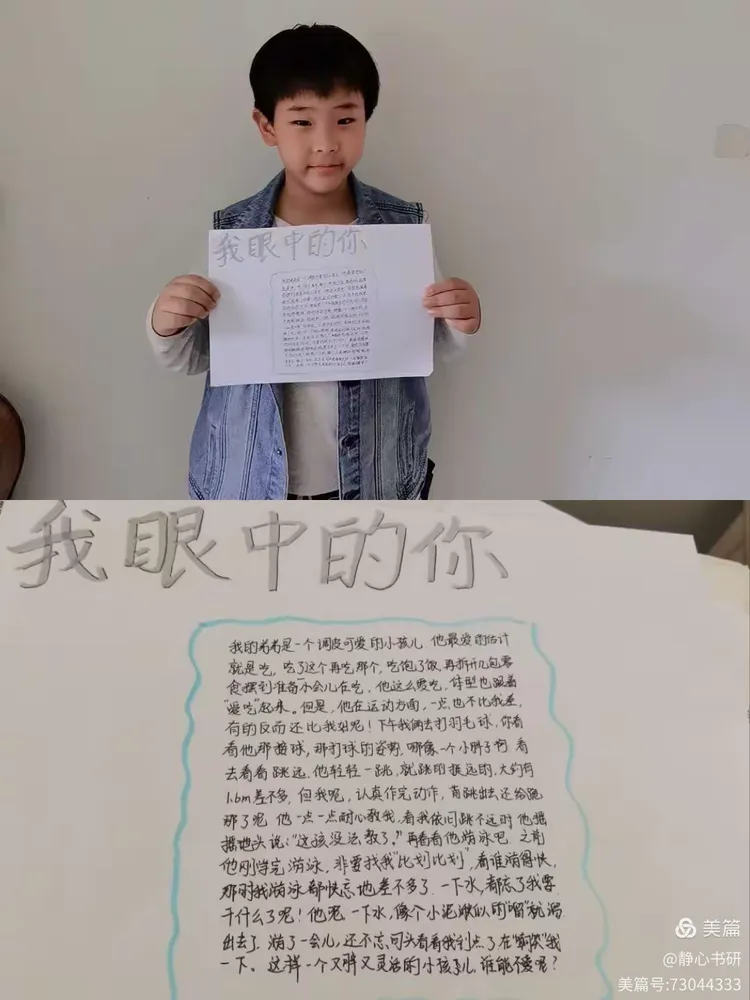 我眼中的你
我眼中的你
我的弟弟是一个调皮可爱的小孩儿 他最爱的估计
就是吃，吃了这个再吃那个，吃饱了饭，再拆开几包零
食摆到准备一小会儿在吃，他这么爱吃，体型也跟着
“爱吃”起来。但是，他在运动方面，一点也不比我差，
有的反而还比我好呢！下午我俩去打羽毛球，你看
看他那接球，那打球的姿势，哪像一个小胖子啊 看
去看看跳远 他轻轻一跳，就跳的挺远的，大约有
1.6m差不多，但我呢，认真作完动作，直跳出去，还给跑
那了呢 他一点一点耐心教我，看我依旧跳不远时 他摇
摇地头说：“这孩没法教了。”再看看他游泳吧 之前
他刚学完游泳，非要找我“比划比划”，看谁游得快，
那时我游泳都快忘地差不多了 一下水，都忘了我要
干什么了呢！他呢 一下水，像个小泥鳅似的“嗖”就溜
出去了 游了一会儿，还不忘回头看看我到点了在我
一下。这样一个又胖又灵活的小孩子儿，谁能不爱呢？
美篇
@静心书研
美篇号:73044333